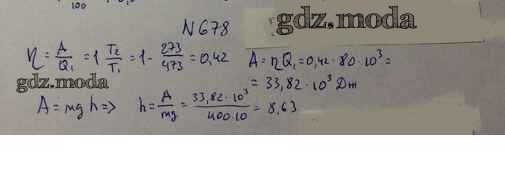 100
N 678
gdz.moda
η = A/Q₁ = 1 T₂/T₁ = 1 - 273/473 = 0,42 A = ηQ₁ = 0,42 · 80 · 10³ =
= 33,82 · 10³ Дж
gdz.moda
A = mgh => h = A/mg = 33,82 · 10³/400·10 = 8,63